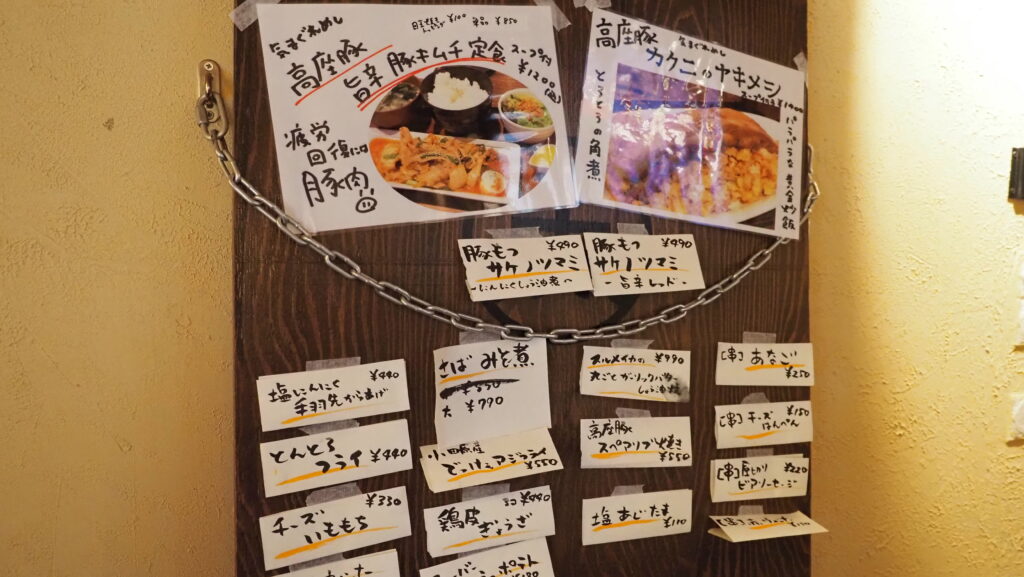 気まぐれめし
高座豚
旨辛 豚キムチ定食
スープ付
¥1200
単品 ¥850
疲労
回復には
豚肉
気まぐれめし
高座豚
カクニのヤキメシ
とろとろの角煮
パラパラな 黄金炒飯
豚もつ ¥490
サケノツマミ
~にんにくしょうゆ煮~
豚もつ ¥490
サケノツマミ
-旨辛レッド-
塩にんにく ¥440
手羽先からあげ
さば みそ煮
大 ¥790
スルメイカの ¥990
丸ごとガーリックバター
しょうゆ焼
[串] あなご
¥250
とんとろ
フライ ¥440
小田原産
でっけぇアジフライ
¥550
高座豚
スペアリブ焼き
¥550
[串] チーズ ¥150
はんぺん
チーズ ¥330
いももち
鶏皮 ¥440
ぎょうざ
塩 あじたま
¥110
[串] ¥220
ポテト